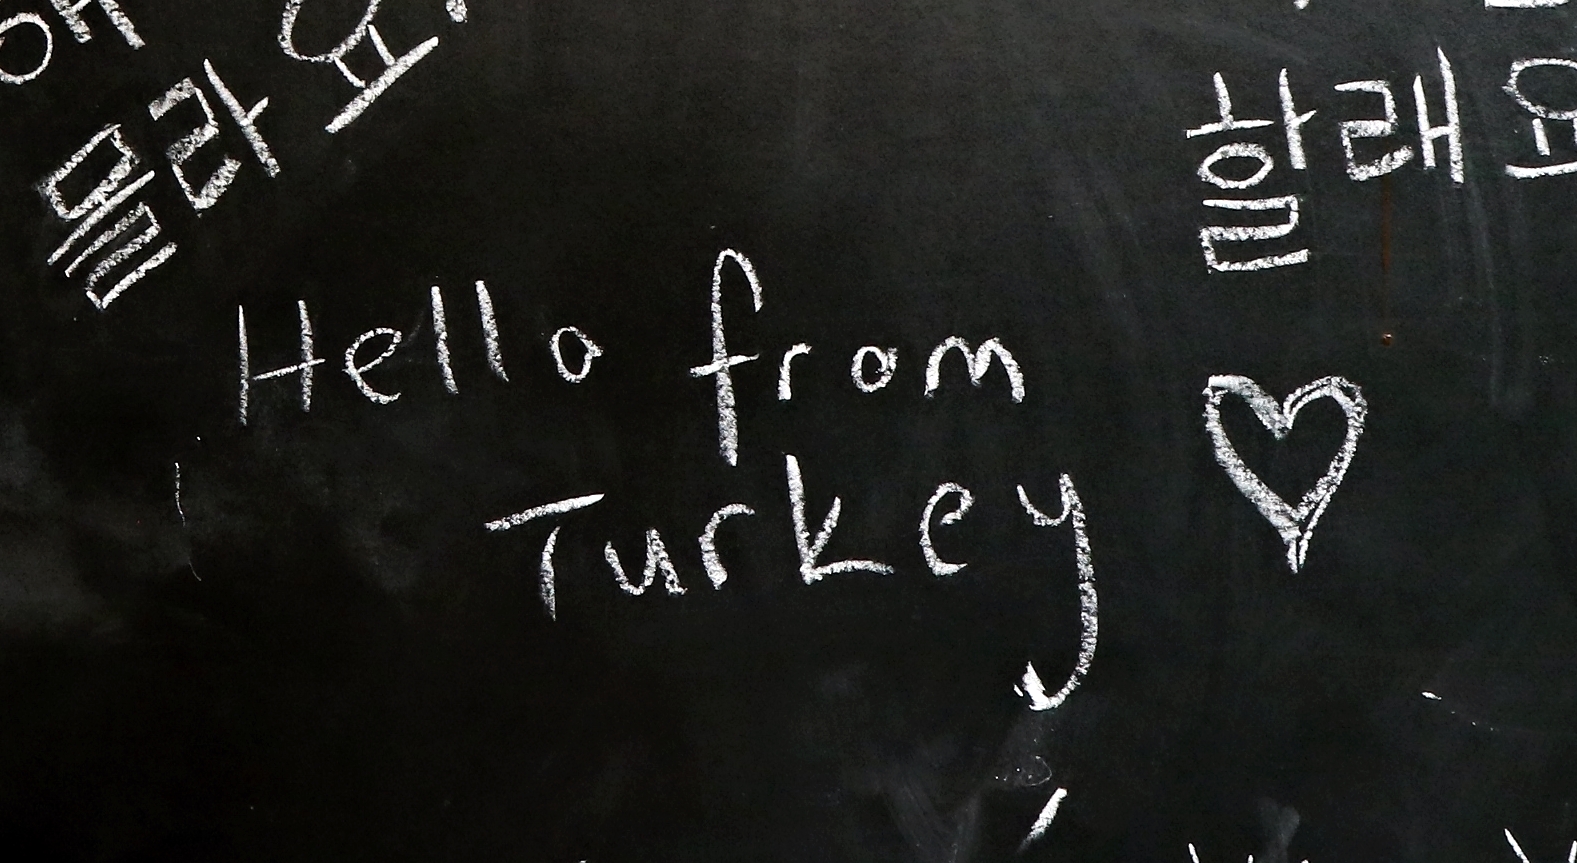 몰라요
할래요
Hello from
Turkey ♡